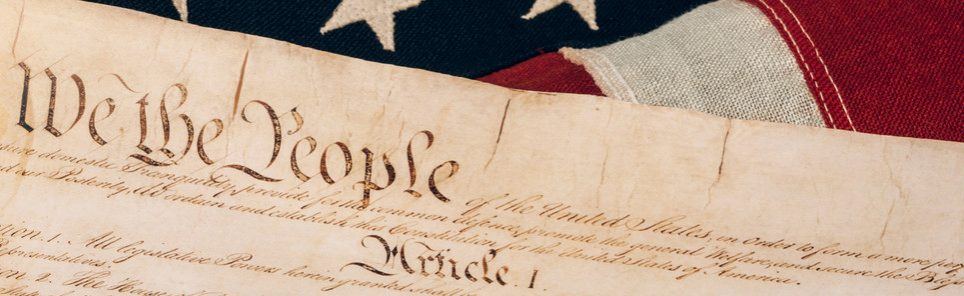 We the People of the United States, in order to form a more
sure domestic Tranquility, provide for the common defence, promote the general Welfare, and secure the
our Posterity, do ordain and establish this Constitution for the United States of America.
Article. I.
tion. 1. All legislative Powers herein granted shall be
Representatives.
on 2. The House